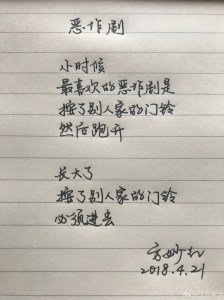 恶作剧
小时候
最喜欢的恶作剧是
按了别人家的门铃
然后跑开
长大了
按了别人家的门铃
必须进去
2018.4.21